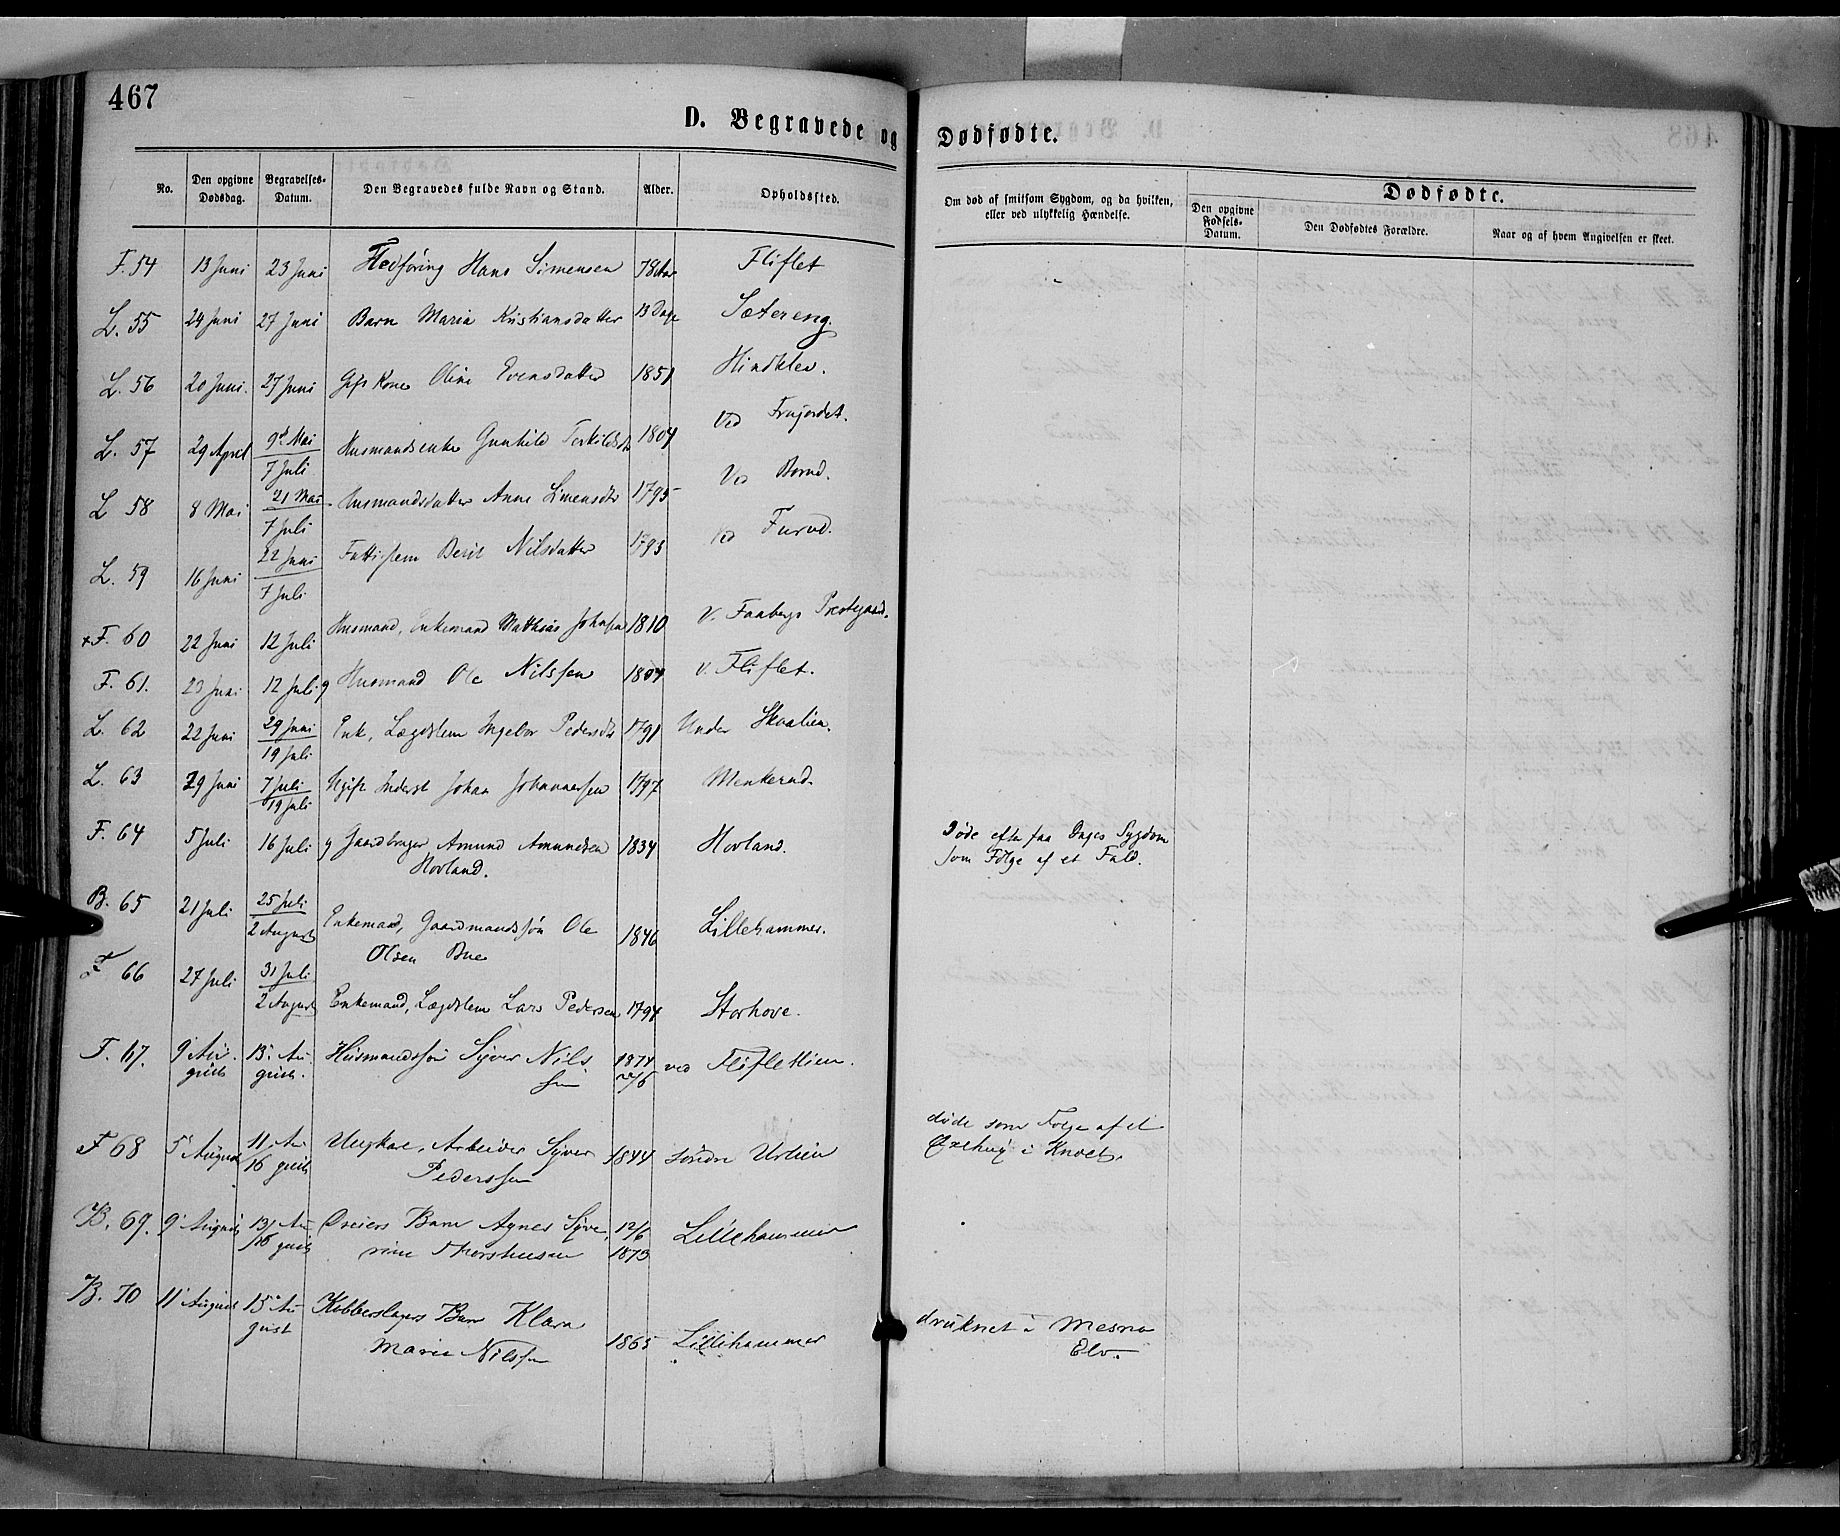 467
D. Begravede og Dødfødte.
No. Den opgivne Dødsdag. Begravelses-Datum. Den Begravedes fulde Navn og Stand. Alder. Opholdssted. Om død af smitsom Sygdom, og da hvilken, eller ved ulykkelig Hændelse. Dødfødte.
Den opgivne Fødsels-Datum. Den Dødfødtes Forældre. Naar og af hvem Angivelsen er skeet.
F. 54 13 Juni 23 Juni Fledføring Hans Simensen 78 Aar Fliflet
L. 55 24 Juni 27 Juni Barn Maria Kristiansdatter 13 Dage Sætereng.
L. 56 20 Juni. 27 Juni Gift Kone Oline Evensdatter 1851 Hindklev.
L. 57 29 April 9de Mai Husmandsenke Gunhild Terkildsd. 1804 Ved
7 Juli
L 58 8 Mai 21 Mai Husmandsdatter Anne Simensdtr 1795 Ved
7 Juli
L. 59 16 Juni 22 Juni Fattiglem Berit Nilsdatter 1793 Ved Furud.
7 Juli
F. 60 22 Juni 12 Juli Husmand, Enkemand Mathias Johnsen 1810 V. Faabergs Præstegaard.
F. 61. 23 Juni 12 Juli g Husmand Ole Nilssen 1804 v. Fliflet.
L. 62 22 Juni 29 Juni Enke, Lægdslem Ingebor Pedersdtr 1791 Under Skaalien.
19 Juli
L. 63 29 Juni 7 Juli Ugift Inderst Johan Johannessen 1797 Menkerud.
19 Juli
F. 64 5 Juli 16 Juli g Gaardbruger Amund Amundsen 1834 Hovland. Døde efter faa Dages Sygdom
Hovland. som Følge af et Fald.
B. 65 21 Juli 25 Juli Enkemand, Gaardmandssøn Ole 1846 Lillehammer.
2 August Olsen Bue
F 66 27 Juli 31 Juli
2 August Enkemand, Lægdslem Lars Pedersen 1794 Storhove.
F. 67. 9 Au- 13 Au- Husmandssøn Syver Nils 1874 ved Fliflethien.
gust gust. sen
F 68 5 August 11 Au- Ungkar, Arbeider Syver 1844 søndre Urlien døde som Følge af et
16 gust Pederssen Øxehug i Knæet.
B. 69. 9 August 13 Au- Dreiers Barn Agnes Syve 12/6 Lillehammer
16 gust rine Thorstensen 1873
B. 70 11 August 15 Au- Kobberslagers Barn Klara druknet i Mesna
gust Marie Nilssen 1865 Lillehammer Elv.